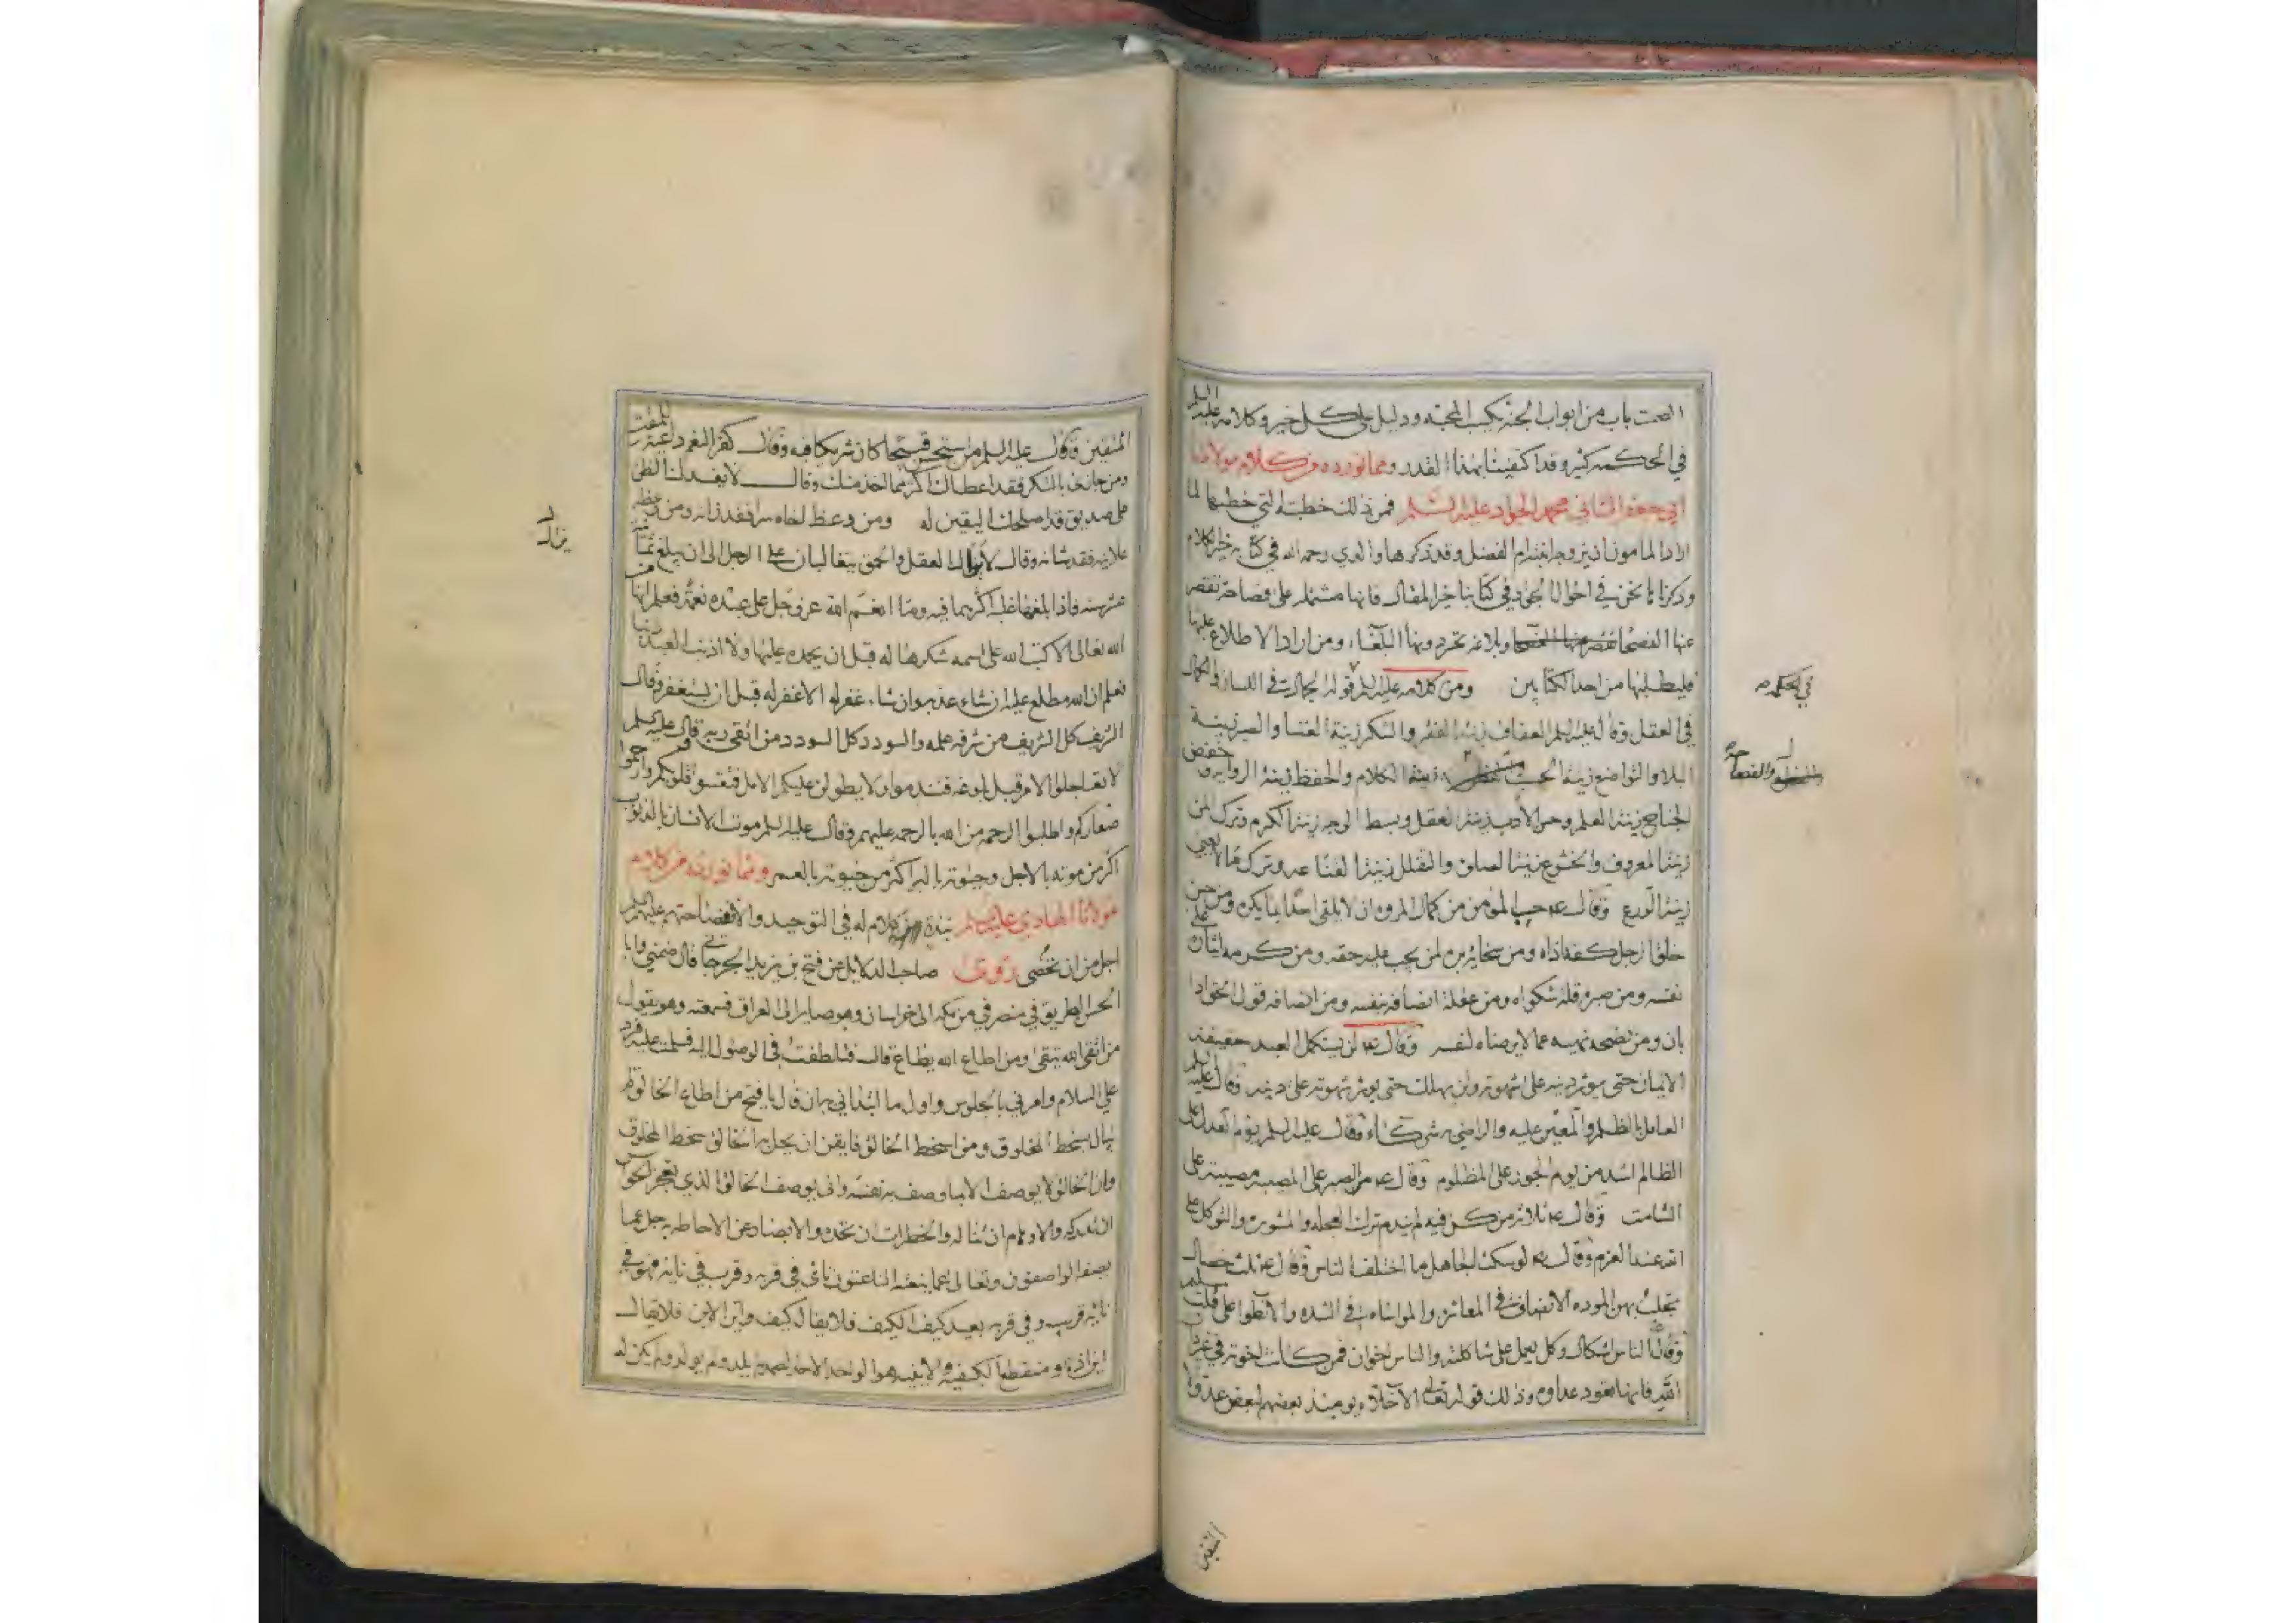 الصمت باب من ابواب الجنة يكسب المحبة ودليل على كل خير وكلامه عليه السلم
في الحكمة كثير وقد اكتفينا بهذا القدر ومما نورده من كلام مولانا
ابي جعفر الثاني محمد الجواد عليه السلم فمن ذلك خطبته التي خطبها لما
اراد المامون ان يزوجه ابنته ام الفضل وقد ذكرها والدي رحمه الله في كتابه خير الكلام
وذكرنا نحن في احوال الجواد في كتابنا خير المقال فانها مشتملة على فصاحة تقصر
عنها الفصحا وبلاغة تحرم ومنها البلغا، ومن اراد الاطلاع عليها
فليطلبها من احد الكتابين ومن كلامه عليه السلم قوله الجمال في اللسان والكمال
في العقل وقال عليه السلم العفاف زينة الفقر والشكر زينة الغنا والصبر زينة
البلا والتواضع زينة الحسب زينة الكلام والحفظ زينة الرواية وخفض
الجناح زينة العلم وحسن الادب زينة العقل وبسط الوجه زينة الكرم وترك المن
زينة المعروف والخشوع زينة الصلوة والتقلل زينة القناعه وترك ما لا يعني
زينة الورع وقال ع حسب المؤمن من كمال المروه ان لا يلقى احدا بما يكره ومن حسن
خلق الرجل كفه اذاه ومن سخائه بره لمن يجب عليه حقه ومن كرمه ايثاره على
نفسه ومن صبره قلة شكواه ومن عقله انصافه من نفسه ومن انصافه قول الحق اذا
بان ومن نصحه نهيه عما لا يرضاه لنفسه وقال ع لن يستكمل العبد حقيقة
الايمان حتى يوثر دينه على شهوته ولن يهلك حتى يوثر شهوته على دينه وقال عليه السلم
العامل بالظلم والمعين عليه والراضي به شركاء وقال عليه السلم يوم العدل على
الظالم اشد من يوم الجور على المظلوم وقال ع الصبر على المصيبة مصيبة على
الشامت وقال ع ثلاثة من كن فيه لم يندم ترك العجله والمشورة والتوكل على
الله عند العزم وقال ع لو سكت الجاهل ما اختلف الناس وقال ع ثلث خصال
تجلب بهن الموده الانصاف في المعاشره والمواساة في الشده والانطوا على قلب سليم
وقال ع الناس اشكال وكل يعمل على شاكلته والناس اخوان فمن كانت اخوته في غير ذات
الله فانها تعود عداوه وذلك قوله تعالى الاخلاء يومئذ بعضهم لبعض عدو الا
في الحكمة
والفصاحة
المتقين
المتقين وقال عليه السلم من استحسن قبيحا كان شريكا فيه وقال كفر النعم داعية للمقت
ومن جازاك بالشكر فقد اعطاك اكثر مما اخذ منك وقال لا يفسدك الظن
على صديق قد اصلحك اليقين له ومن وعظ اخاه سرا فقد زانه ومن وعظه
علانية فقد شانه وقال لا يزال العقل والحمق يتغالبان على الرجل الى ان يبلغ ثماني
عشر سنه فاذا بلغها غلب اكثرهما فيه وما انعم الله عز وجل على عبده نعمة فعلم انها من
الله تعالى الا كتب الله على اسمه شكرها له قبل ان يحمده عليها ولا اذنب العبد ذنبا
فعلم ان الله مطلع عليه ان شاء عذبه وان شاء غفر له الا غفر له قبل ان يستغفره وقال
الشريف كل الشريف من شرفه علمه والسودد كل السودد من اتقى ربه وقال عليه السلم
لا تعاجلوا الامر قبل بلوغه فتندموا ولا يطولن عليكم الامل فتقسو قلوبكم وارحموا
ضعفاركم واطلبوا الرحمه من الله بالرحمه عليهم وقال عليه السلم موت الانسان بالذنوب
اكثر من موته بالاجل وحيوته بالبر اكثر من حيوته بالعمر ومما نورده من كلام
مولانا الهادي عليه السلم نبذة من كلام له في التوحيد والا ففصاحتهم عليهم السلم
اجل من ان تحصى روى صاحب الدلايل عن فتح بن يزيد الجرجاني قال ضمني وابا
الحسن الطريق في منصرفي من مكه الى خراسان وهو صاير الى العراق فسمعته وهو يقول
من اتقى الله يتقى ومن اطاع الله يطاع قال فتلطفت في الوصول اليه فسلمت عليه فرد
علي السلام وامرني بالجلوس واول ما ابتدأني به ان قال يا فتح من اطاع الخالق لم
يبال بسخط المخلوق ومن اسخط الخالق فايقن ان يحل به الخالق سخط المخلوق
وان الخالق لا يوصف الا بما وصف به نفسه وانى يوصف الخالق الذي تعجز الحواس
ان تدركه والاوهام ان تناله والخطرات ان تحده والابصار عن الاحاطة به جل عما
يصفه الواصفون وتعالى عما ينعته الناعتون نائى في قربه وقرب في نايه فهو في
نايه قريب وفي قربه بعيد كيف الكيف فلا يقال كيف واين الاين فلا يقال
اين اذ هو منقطع الكيفية والاينيه هو الواحد الاحد الصمد لم يلد ولم يولد ولم يكن له
يزال